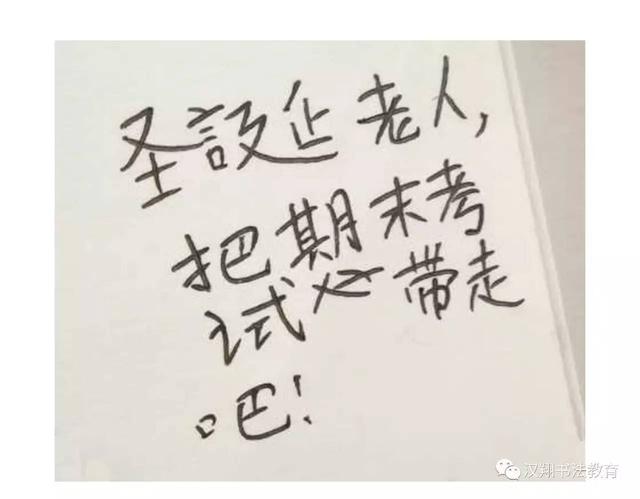 圣誕老人,
把期末考
试带走
吧!
汉翔书法教育